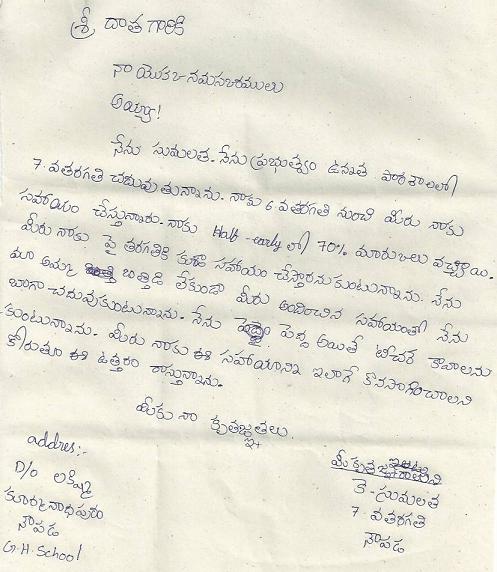 శ్రీ దాత గారికి
నా యొక్క నమస్కారములు
అయ్యా!
నేను సుమలత. నేను ప్రభుత్వం ఉన్నత పాఠశాలలో
7 వతరగతి చదువుతున్నాను. నాకు 6 వతరగతి నుంచి మీరు నాకు
సహాయం చేస్తున్నారు. నాకు Half-early లో 70% మారుకలు వచ్చాయి.
మీరు నాకు పై తరగతికి కూడా సహాయం చేస్తారనుకుంటున్నాను. నేను
మా అమ్మ ఒత్తిడి లేకుండా మీరు అందించిన సహాయంతో నేను
బాగా చదువుకుంటున్నాను. నేను పెద్ద అయితే టీచర్ కావాలను
కుంటున్నాను. మీరు నాకు ఈ సహాయాన్ని ఇలాగే కొనసాగించాలని
కోరుతూ ఈ ఉత్తరం రాస్తున్నాను.
మీకు నా కృతజ్ఞతలు.
addres:-
D/o లక్ష్మి
కూర్మనాధపురం
నౌపడ
G.H. School
కె-సుమలత
7 వతరగతి
నౌపడ